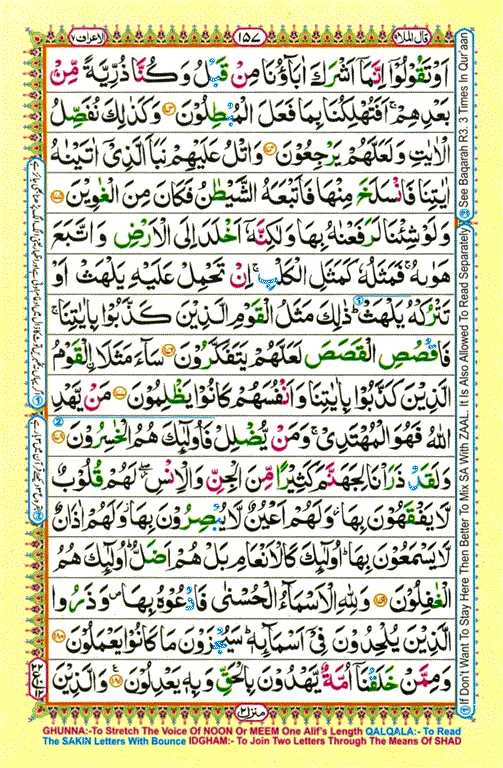 الاعراف ٧
١٥٧
قال الملا ٩
اَوْ تَقُوْلُوْٓا اِنَّمَآ اَشْرَكَ اٰبَآؤُنَا مِنْ قَبْلُ وَكُنَّا ذُرِّيَّةً مِّنْۢ
بَعْدِهِمْ ۚ اَفَتُهْلِكُنَا بِمَا فَعَلَ الْمُبْطِلُوْنَ ۝ وَكَذٰلِكَ نُفَصِّلُ
الْاٰيٰتِ وَلَعَلَّهُمْ يَرْجِعُوْنَ ۝ وَاتْلُ عَلَيْهِمْ نَبَاَ الَّذِيْٓ اٰتَيْنٰهُ
اٰيٰتِنَا فَانْسَلَخَ مِنْهَا فَاَتْبَعَهُ الشَّيْطٰنُ فَكَانَ مِنَ الْغٰوِيْنَ ۝
وَلَوْ شِئْنَا لَرَفَعْنٰهُ بِهَا وَلٰكِنَّهٗٓ اَخْلَدَ اِلَى الْاَرْضِ وَاتَّبَعَ
هَوٰىهُ ۚ فَمَثَلُهٗ كَمَثَلِ الْكَلْبِ ۚ اِنْ تَحْمِلْ عَلَيْهِ يَلْهَثْ اَوْ
تَتْرُكْهُ يَلْهَثْ ؕ ذٰلِكَ مَثَلُ الْقَوْمِ الَّذِيْنَ كَذَّبُوْا بِاٰيٰتِنَا ۚ
فَاقْصُصِ الْقَصَصَ لَعَلَّهُمْ يَتَفَكَّرُوْنَ ۝ سَآءَ مَثَلًا ۨالْقَوْمُ
الَّذِيْنَ كَذَّبُوْا بِاٰيٰتِنَا وَاَنْفُسَهُمْ كَانُوْا يَظْلِمُوْنَ ۝ مَنْ يَّهْدِ
اللّٰهُ فَهُوَ الْمُهْتَدِيْ ۚ وَمَنْ يُّضْلِلْ فَاُولٰٓئِكَ هُمُ الْخٰسِرُوْنَ ۝
وَلَقَدْ ذَرَاْنَا لِجَهَنَّمَ كَثِيْرًا مِّنَ الْجِنِّ وَالْاِنْسِ ۖ لَهُمْ قُلُوْبٌ
لَّا يَفْقَهُوْنَ بِهَا ۫ وَلَهُمْ اَعْيُنٌ لَّا يُبْصِرُوْنَ بِهَا ۫ وَلَهُمْ اٰذَانٌ
لَّا يَسْمَعُوْنَ بِهَا ؕ اُولٰٓئِكَ كَالْاَنْعَامِ بَلْ هُمْ اَضَلُّ ؕ اُولٰٓئِكَ هُمُ
الْغٰفِلُوْنَ ۝ وَلِلّٰهِ الْاَسْمَآءُ الْحُسْنٰى فَادْعُوْهُ بِهَا ۪ وَذَرُوا
الَّذِيْنَ يُلْحِدُوْنَ فِيْٓ اَسْمَآئِهٖ ؕ سَيُجْزَوْنَ مَا كَانُوْا يَعْمَلُوْنَ ۝
وَمِمَّنْ خَلَقْنَآ اُمَّةٌ يَّهْدُوْنَ بِالْحَقِّ وَبِهٖ يَعْدِلُوْنَ ۝ وَالَّذِيْنَ
منزل ٢
① If Don't Want To Stay Here Then Better To Mix SA With ZAAL. It Is Also Allowed To Read Separately ② See Baqarah R3. 3 Times In Qur'aan
GHUNNA:-To Stretch The Voice Of NOON Or MEEM One Alif's Length QALQALA:- To Read
The SAKIN Letters With Bounce IDGHAM:- To Join Two Letters Through The Means Of SHAD